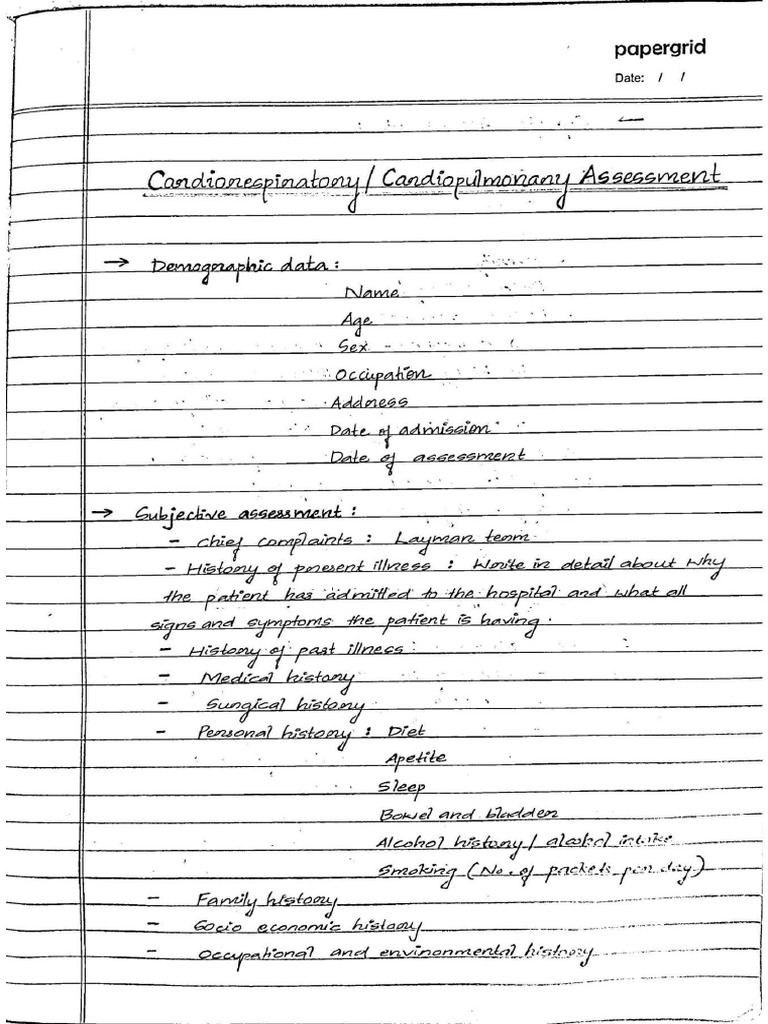 papergrid
Date: / /
Cardiorespiratory / Cardiopulmonary Assessment
→ Demographic data :
Name
Age
Sex
Occupation
Address
Date of admission
Date of assessment
→ Subjective assessment :
- Chief complaints : Layman team
- History of present illness : Write in detail about why
the patient has admitted to the hospital and what all
signs and symptoms the patient is having.
- History of past illness
- Medical history
- Surgical history
- Personal history : Diet
Apetite
Sleep
Bowel and bladder
Alcohol history / alcohol intake
Smoking (No. of packets per day)
- Family history
- Socio economic history
- Occupational and environmental history